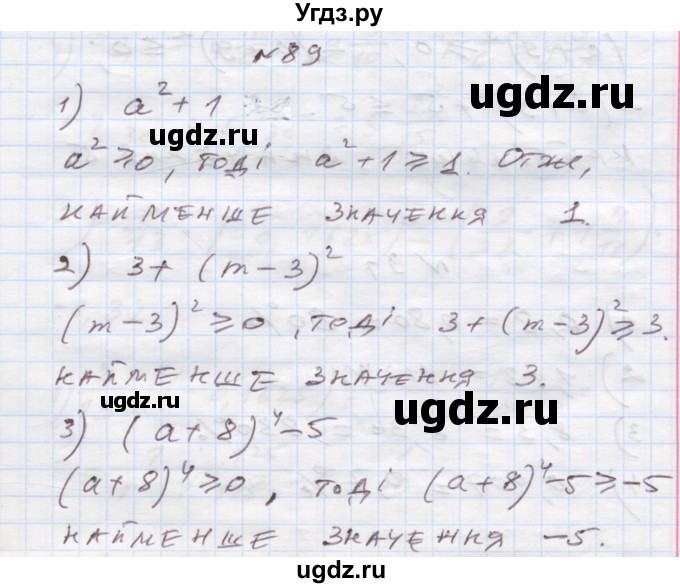 Угдз.ру
№89
1) a² + 1
ugdz.ru
ugdz.ru
a² ≥ 0, тоді a² + 1 ≥ 1. Отже,
найменше значення 1.
2) 3 + (m - 3)²
(m - 3)² ≥ 0, тоді 3 + (m - 3)² ≥ 3.
найменше значення 3.
ugdz.ru
ugdz.ru
3) (a + 8)⁴ - 5
(a + 8)⁴ ≥ 0, тоді (a + 8)⁴ - 5 ≥ -5
найменше значення -5.
ugdz.ru